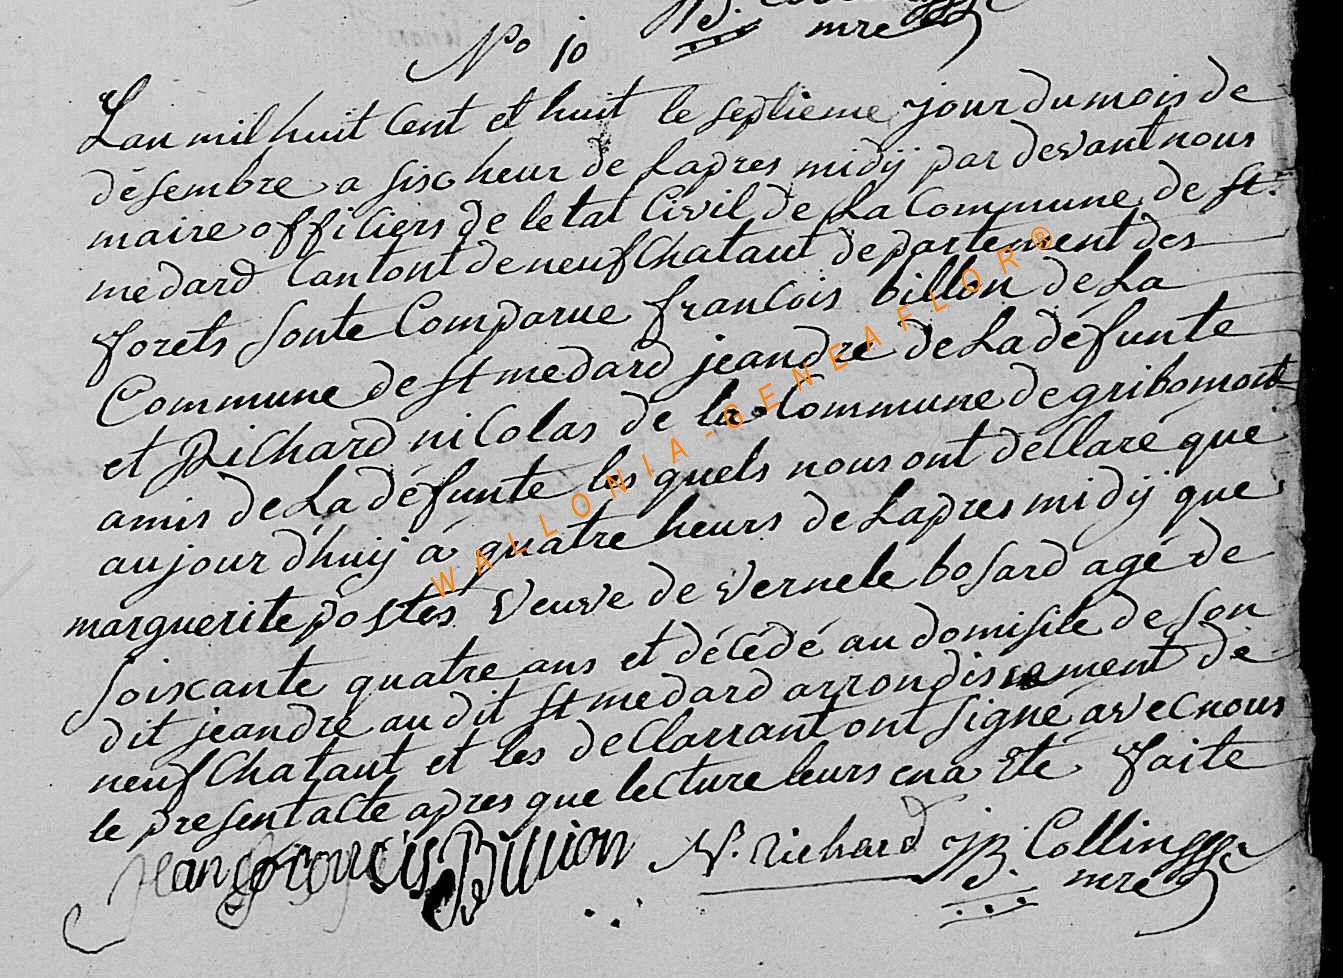 No 10
Lan mil huit Cent et huit le septieme jour du mois de
désembre a sisc heur de Lapres midij par devant nous
maire officiers de letat Civil de La Commune de St.
medard Cantont de neufChataut departement des
forets Sonte Comparue francois billon de La
Commune de St medard jeandre de La defunte
et Richard nicolas de la Commune de gribomont
amis de La défunte les quels nous ont dellaré que
aujour d'huij á quatre heurs de Lapres midij que
marguerite postes Veuve de Vernele bosard agé de
Soiscante quatre ans et décédé au domisile de Son
dit jeandre au dit St medard arrondissement de
neufChataut et les deClarrant ont Signé avec nous
le present acte apres que lecture leurs en a Eté faite
Jean francois Billion N. Richard JB Collin
mre
WALLONIA-GENEAFLOR®